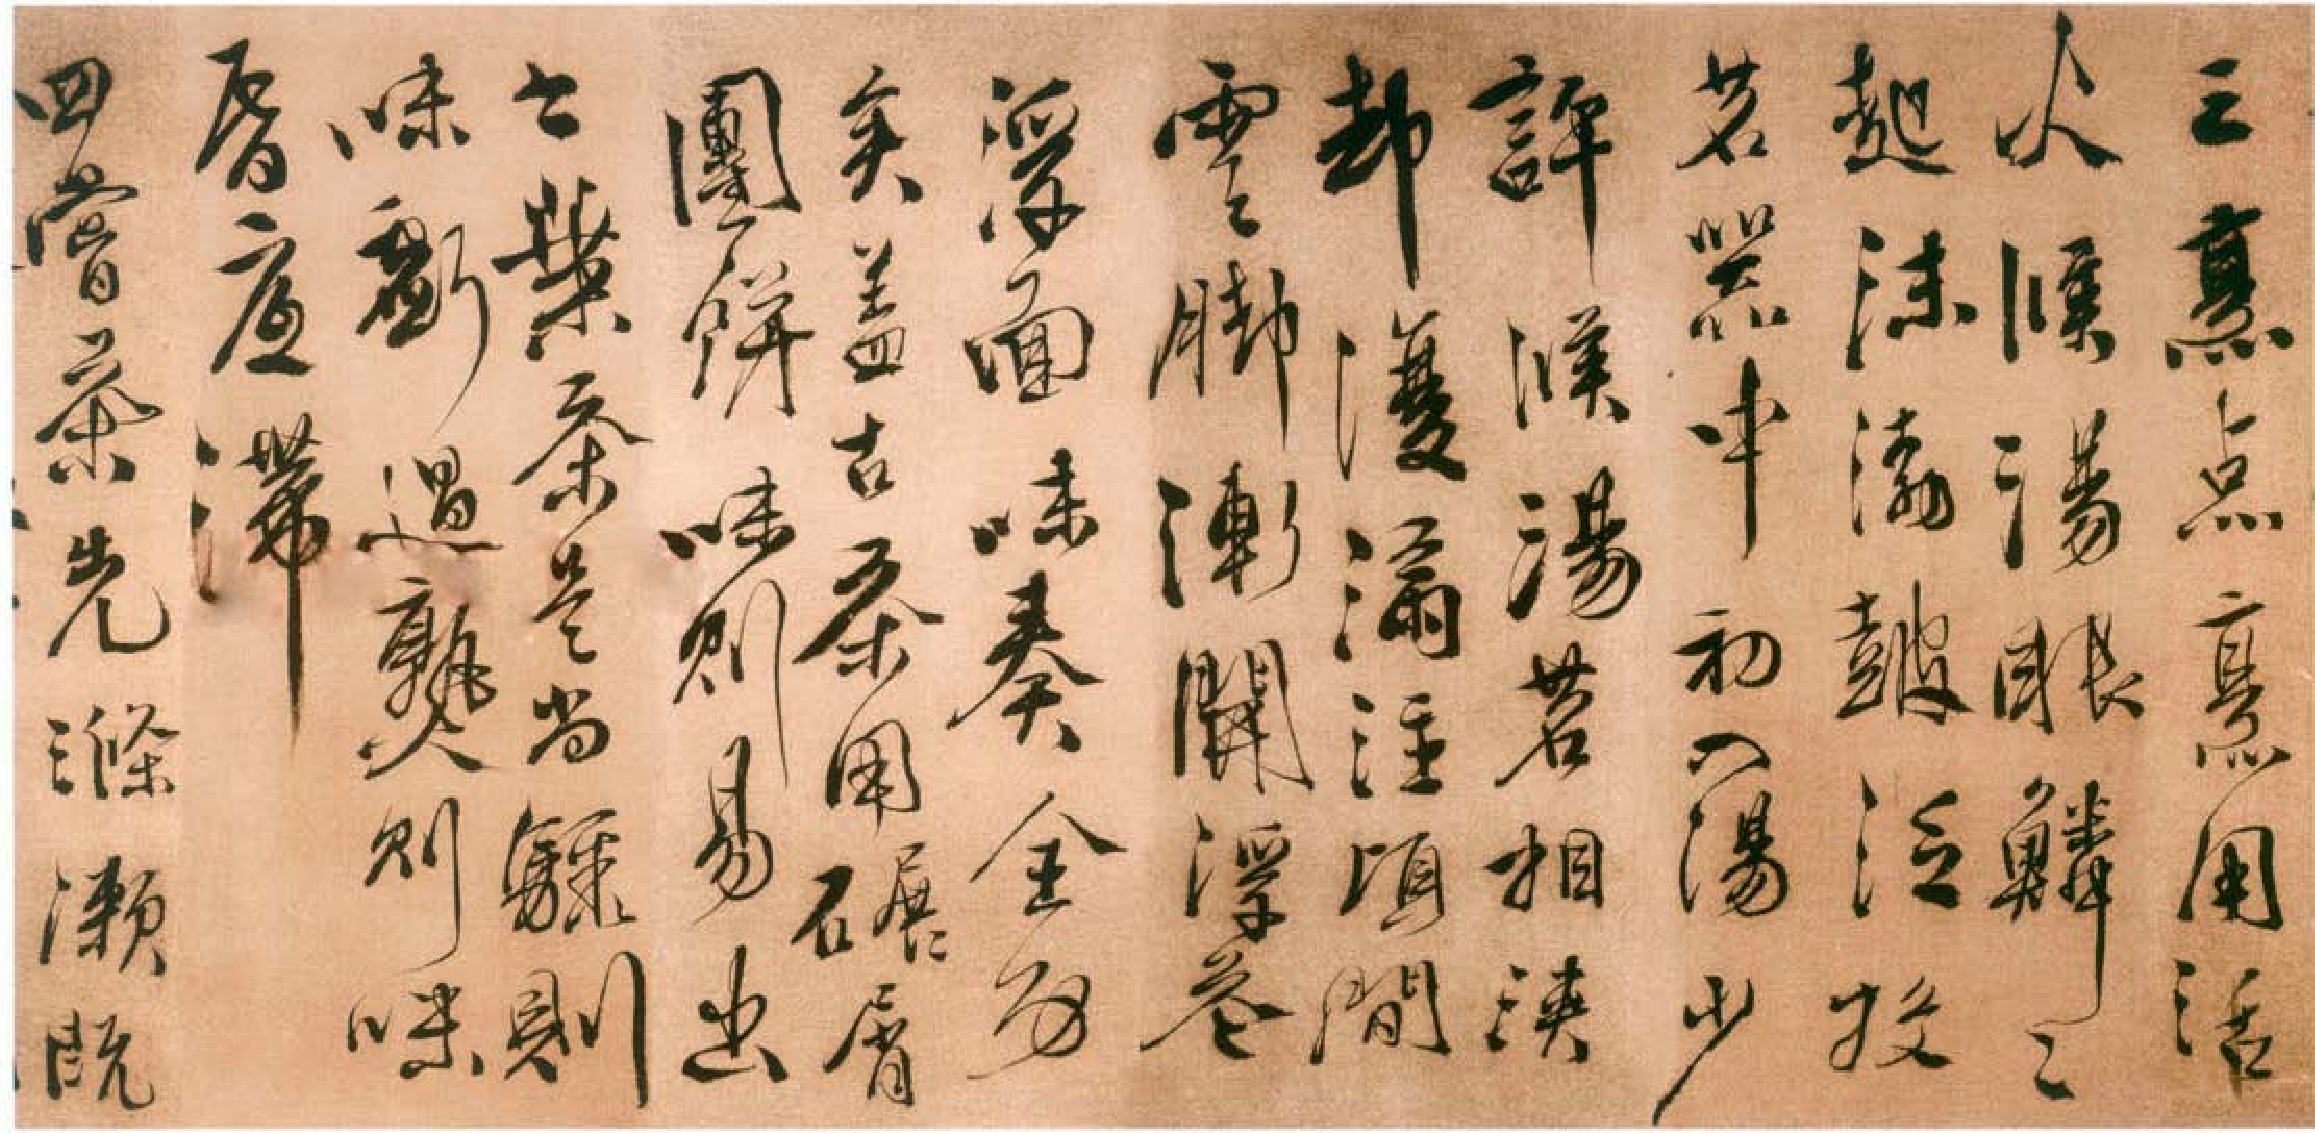 三烹点烹用活
火候湯眼鱗〻
起沫渤皷泛投
茗器中初入湯少
許候湯茗相浹
却復滿注頃間
雲脚漸開浮花
浮面味奏全功
矣盖古茶用碾屑
團餅味則易出
今葉茶是尚驟則
味虧過熟則味
昏底滯
四嘗茶先滌漱既